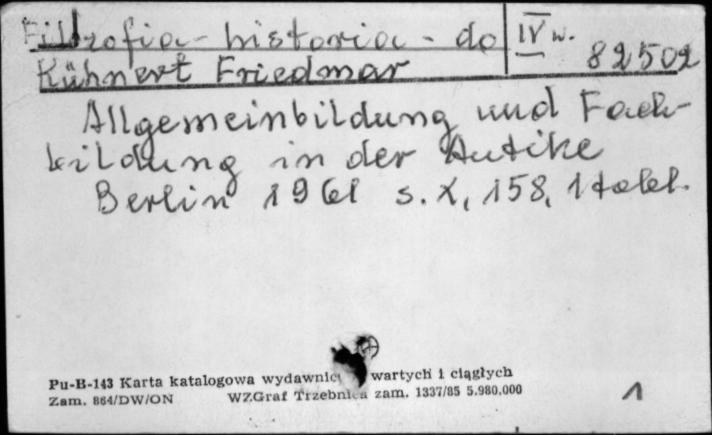 Filozofia - historia - do IV w.
82502
Kühnert Friedmar
Allgemeinbildung und Fach-
bildung in der Antike
Berlin 1961 s. X, 158, 1 tabl.
Pu-B-143 Karta katalogowa wydawnic wartych i ciągłych
Zam. 864/DW/ON WZGraf Trzebnica zam. 1337/85 5.980.000
1